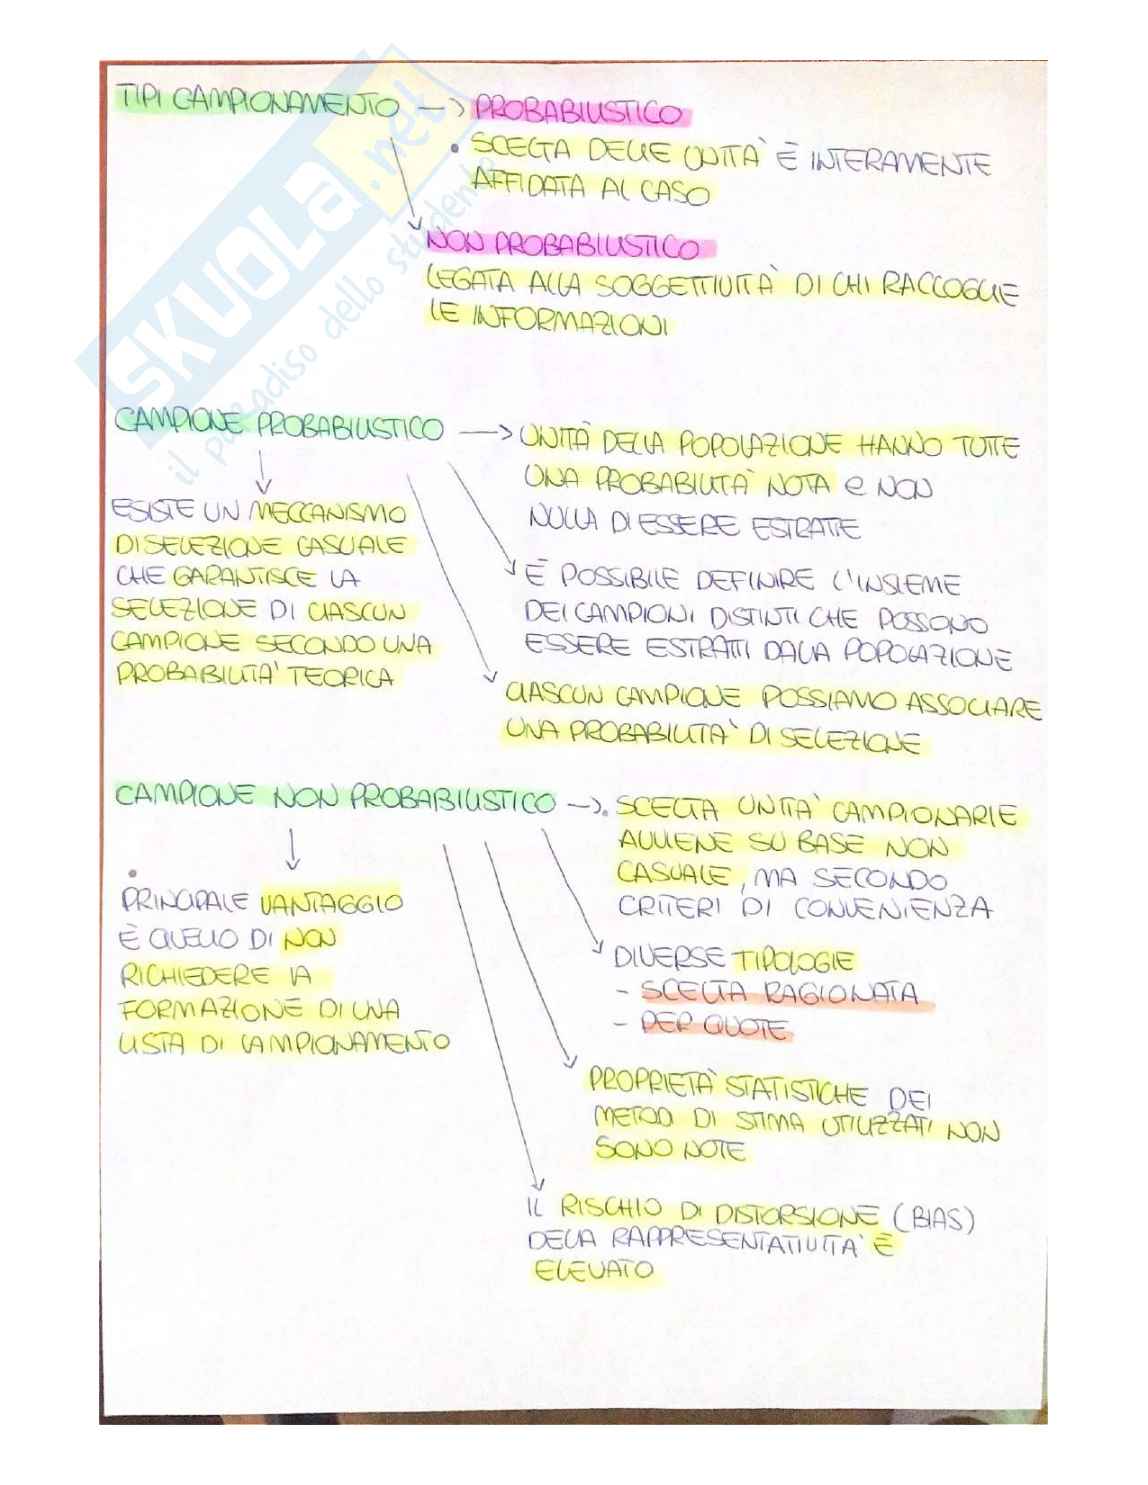 TIPI CAMPIONAMENTO → PROBABILISTICO
• SCELTA DELLE UNITÀ È INTERAMENTE
AFFIDATA AL CASO
NON PROBABILISTICO
LEGATA ALLA SOGGETTIVITÀ DI CHI RACCOGLIE
LE INFORMAZIONI
SKUOLA.net
il paradiso dello studente
CAMPIONE PROBABILISTICO → UNITÀ DELLA POPOLAZIONE HANNO TUTTE
UNA PROBABILITÀ NOTA e NON
NULLA DI ESSERE ESTRATTE
ESISTE UN MECCANISMO
DI SELEZIONE CASUALE
CHE GARANTISCE LA
SELEZIONE DI CIASCUN
CAMPIONE SECONDO UNA
PROBABILITÀ TEORICA
È POSSIBILE DEFINIRE L'INSIEME
DEI CAMPIONI DISTINTI CHE POSSONO
ESSERE ESTRATTI DALLA POPOLAZIONE
CIASCUN CAMPIONE POSSIAMO ASSOCIARE
UNA PROBABILITÀ DI SELEZIONE
CAMPIONE NON PROBABILISTICO → • SCELTA UNITÀ CAMPIONARIE
AVVIENE SU BASE NON
CASUALE, MA SECONDO
CRITERI DI CONVENIENZA
• PRINCIPALE VANTAGGIO
È QUELLO DI NON
RICHIEDERE LA
FORMAZIONE DI UNA
LISTA DI CAMPIONAMENTO
DIVERSE TIPOLOGIE
- SCELTA RAGIONATA
- PER QUOTE
PROPRIETÀ STATISTICHE DEI
METODI DI STIMA UTILIZZATI NON
SONO NOTE
IL RISCHIO DI DISTORSIONE (BIAS)
DELLA RAPPRESENTATIVITÀ È
ELEVATO